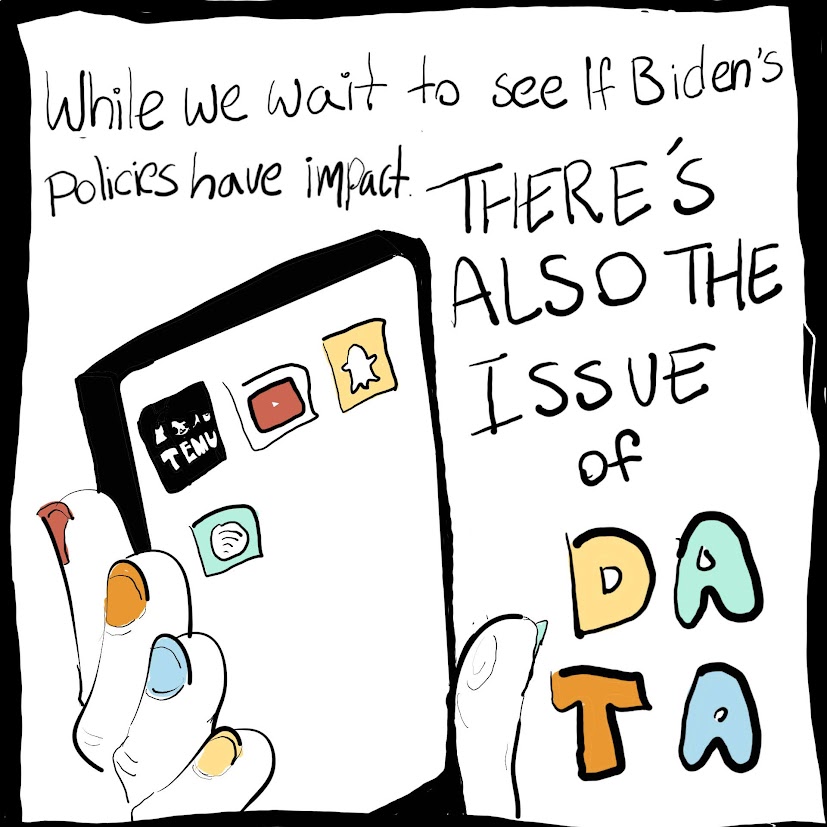 While we wait to see If Biden's
policies have impact.
THERE'S
ALSO THE
ISSUE
of
DA
TA
TEMU